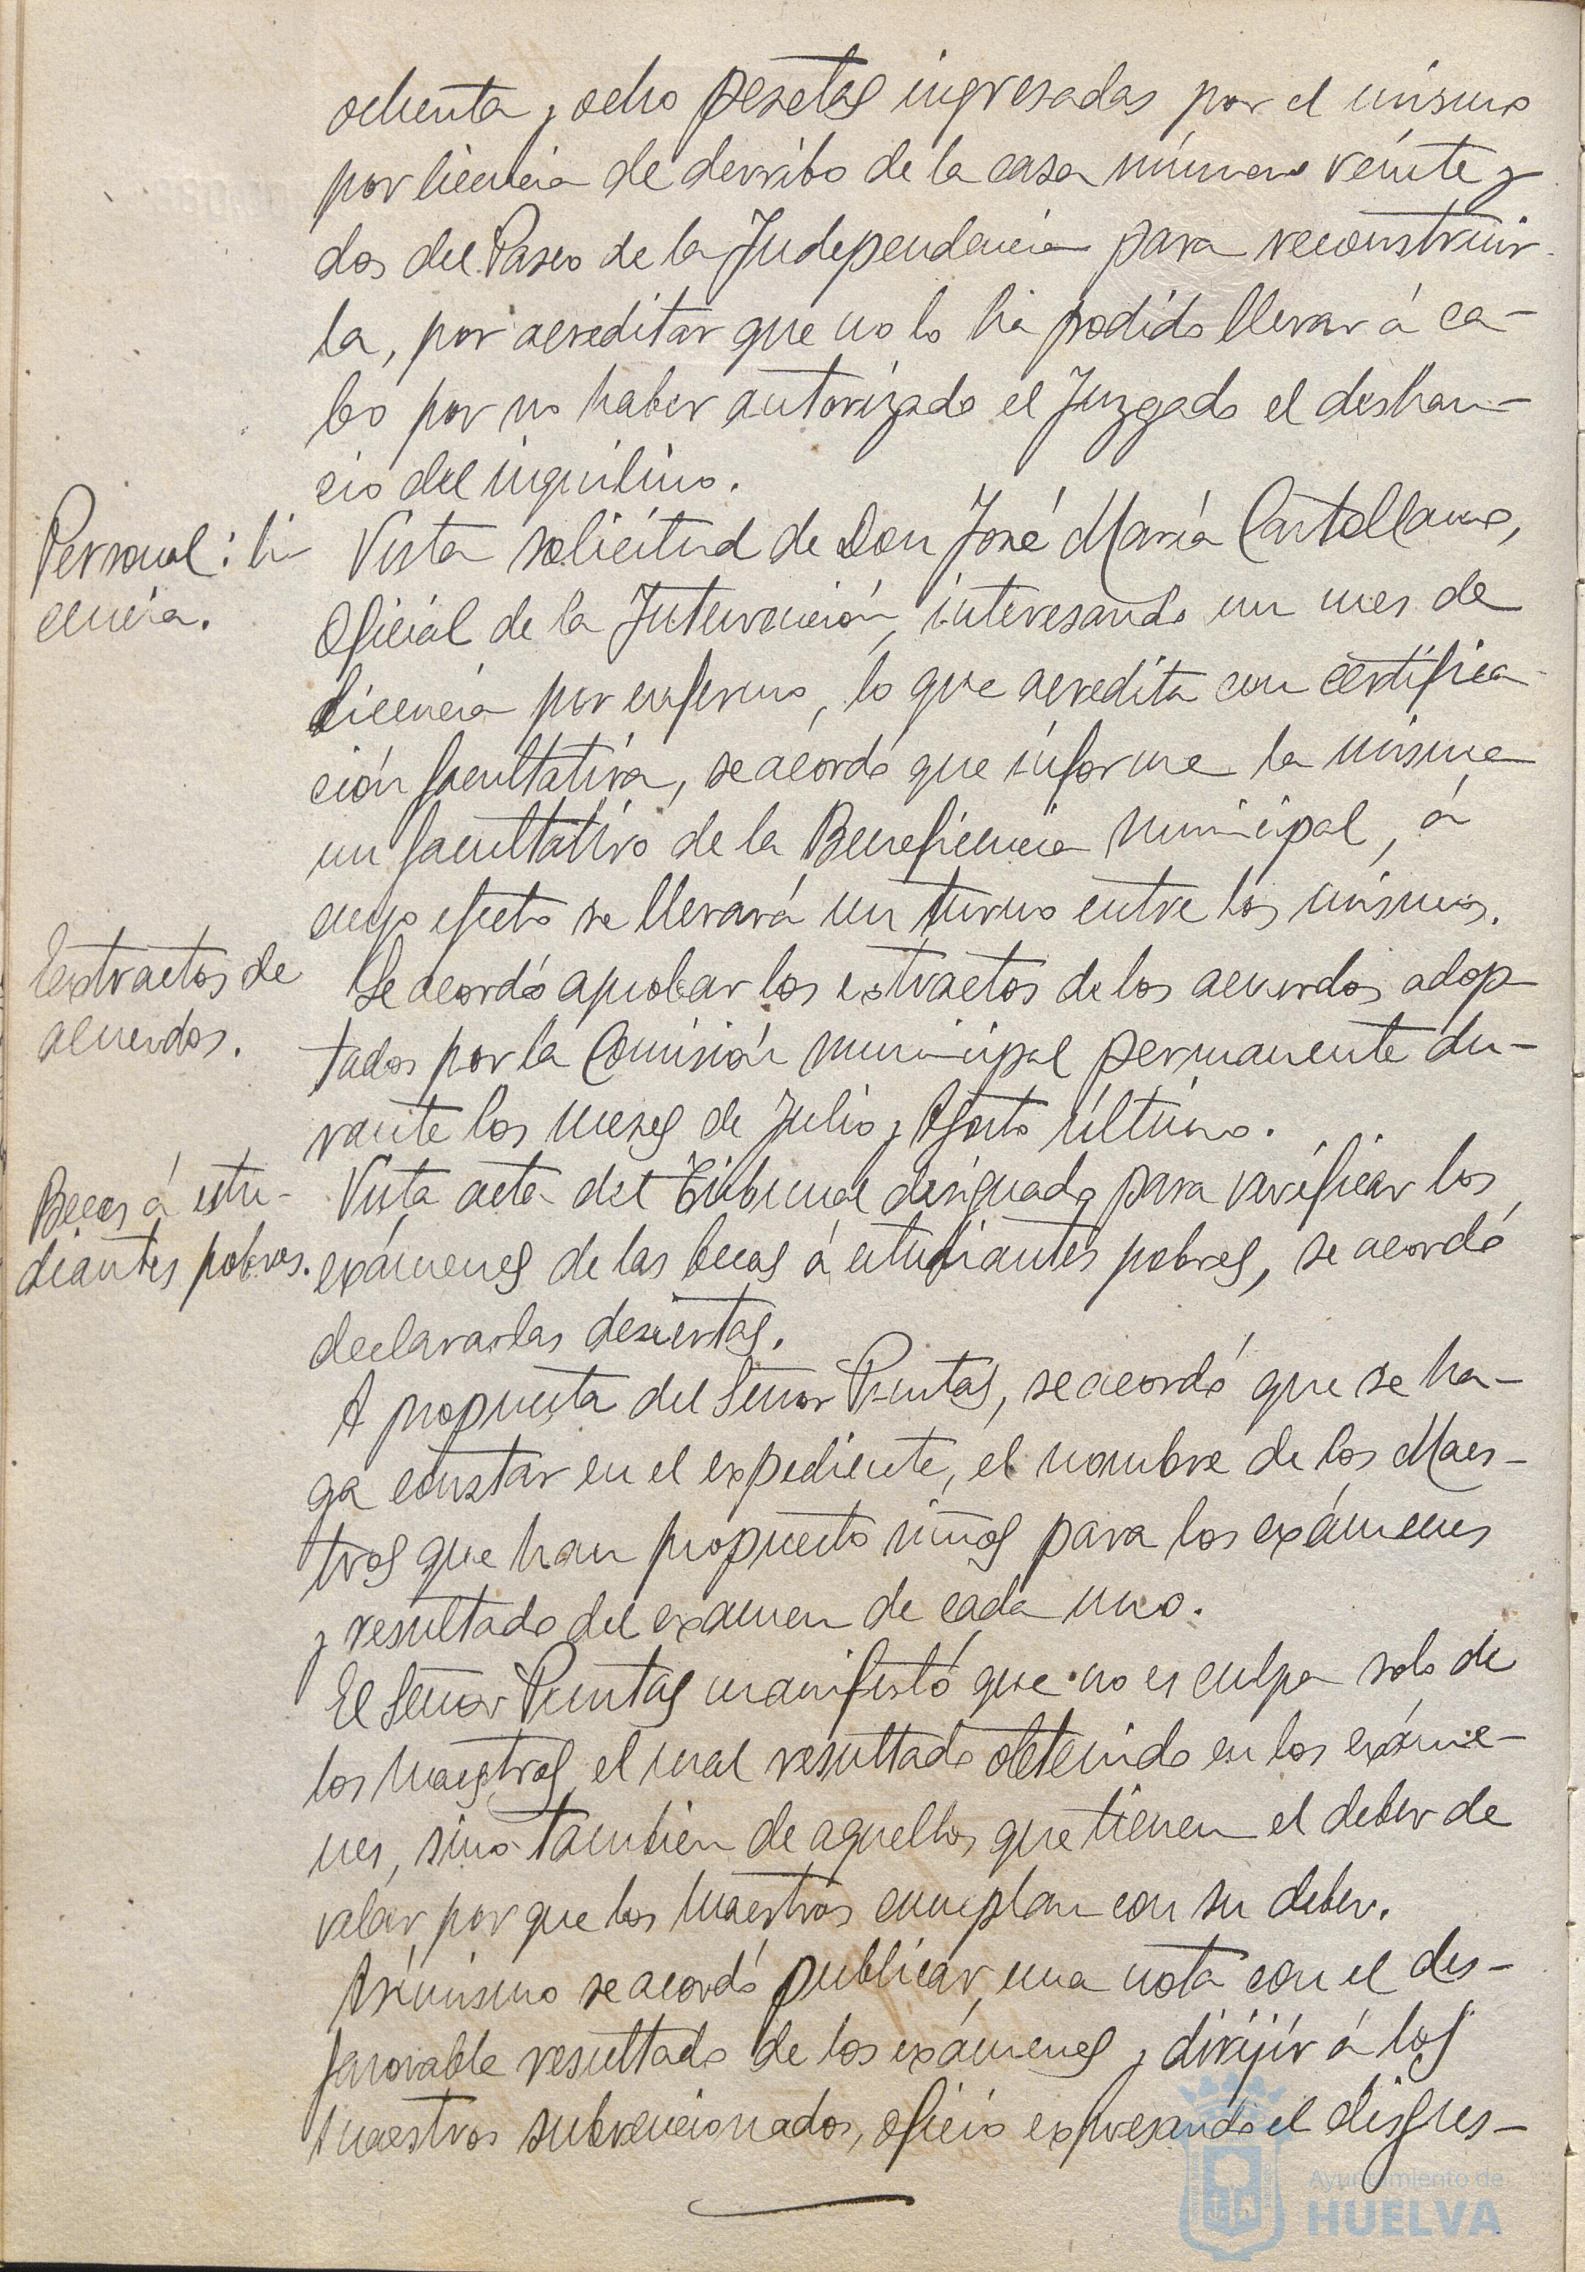 ochenta y ocho pesetas ingresadas por el mismo
por licencia de derribo de la casa número veinte y
dos del Paseo de la Independencia para reconstruir-
la, por acreditar que no lo ha podido llevar á ca-
bo por no haber autorizado el Juzgado el deshau-
cio del inquilino.
Personal: li-
cencia.
Vista solicitud de Don José María Castellano,
Oficial de la Intervención, interesando un mes de
licencia por enfermo, lo que acredita con certifica-
ción facultativa, se acordó que informe la misma
un facultativo de la Beneficencia municipal, á
cuyo efecto se llevará un turno entre los mismos.
Extractos de
acuerdos.
Se acordó aprobar los extractos de los acuerdos adop-
tados por la Comisión municipal permanente du-
rante los meses de Julio y Agosto último.
Becas á estu-
diantes pobres.
Vista acta del Tribunal designado para verificar los
exámenes de las becas á estudiantes pobres, se acordó
declararlas desiertas.
A propuesta del Señor Puntas, se acordó que se ha-
ga constar en el expediente, el nombre de los Maes-
tros que han propuesto niños para los exámenes
y resultado del examen de cada uno.
El Señor Puntas manifestó que no es culpa solo de
los maestros el mal resultado obtenido en los exáme-
nes, sino también de aquellos que tienen el deber de
velar por que los maestros cumplan con su deber.
Asímismo se acordó publicar una nota con el des-
favorable resultado de los exámenes y dirijir á los
maestros subvencionados, oficio expresando el disgus-
Ayuntamiento de
HUELVA